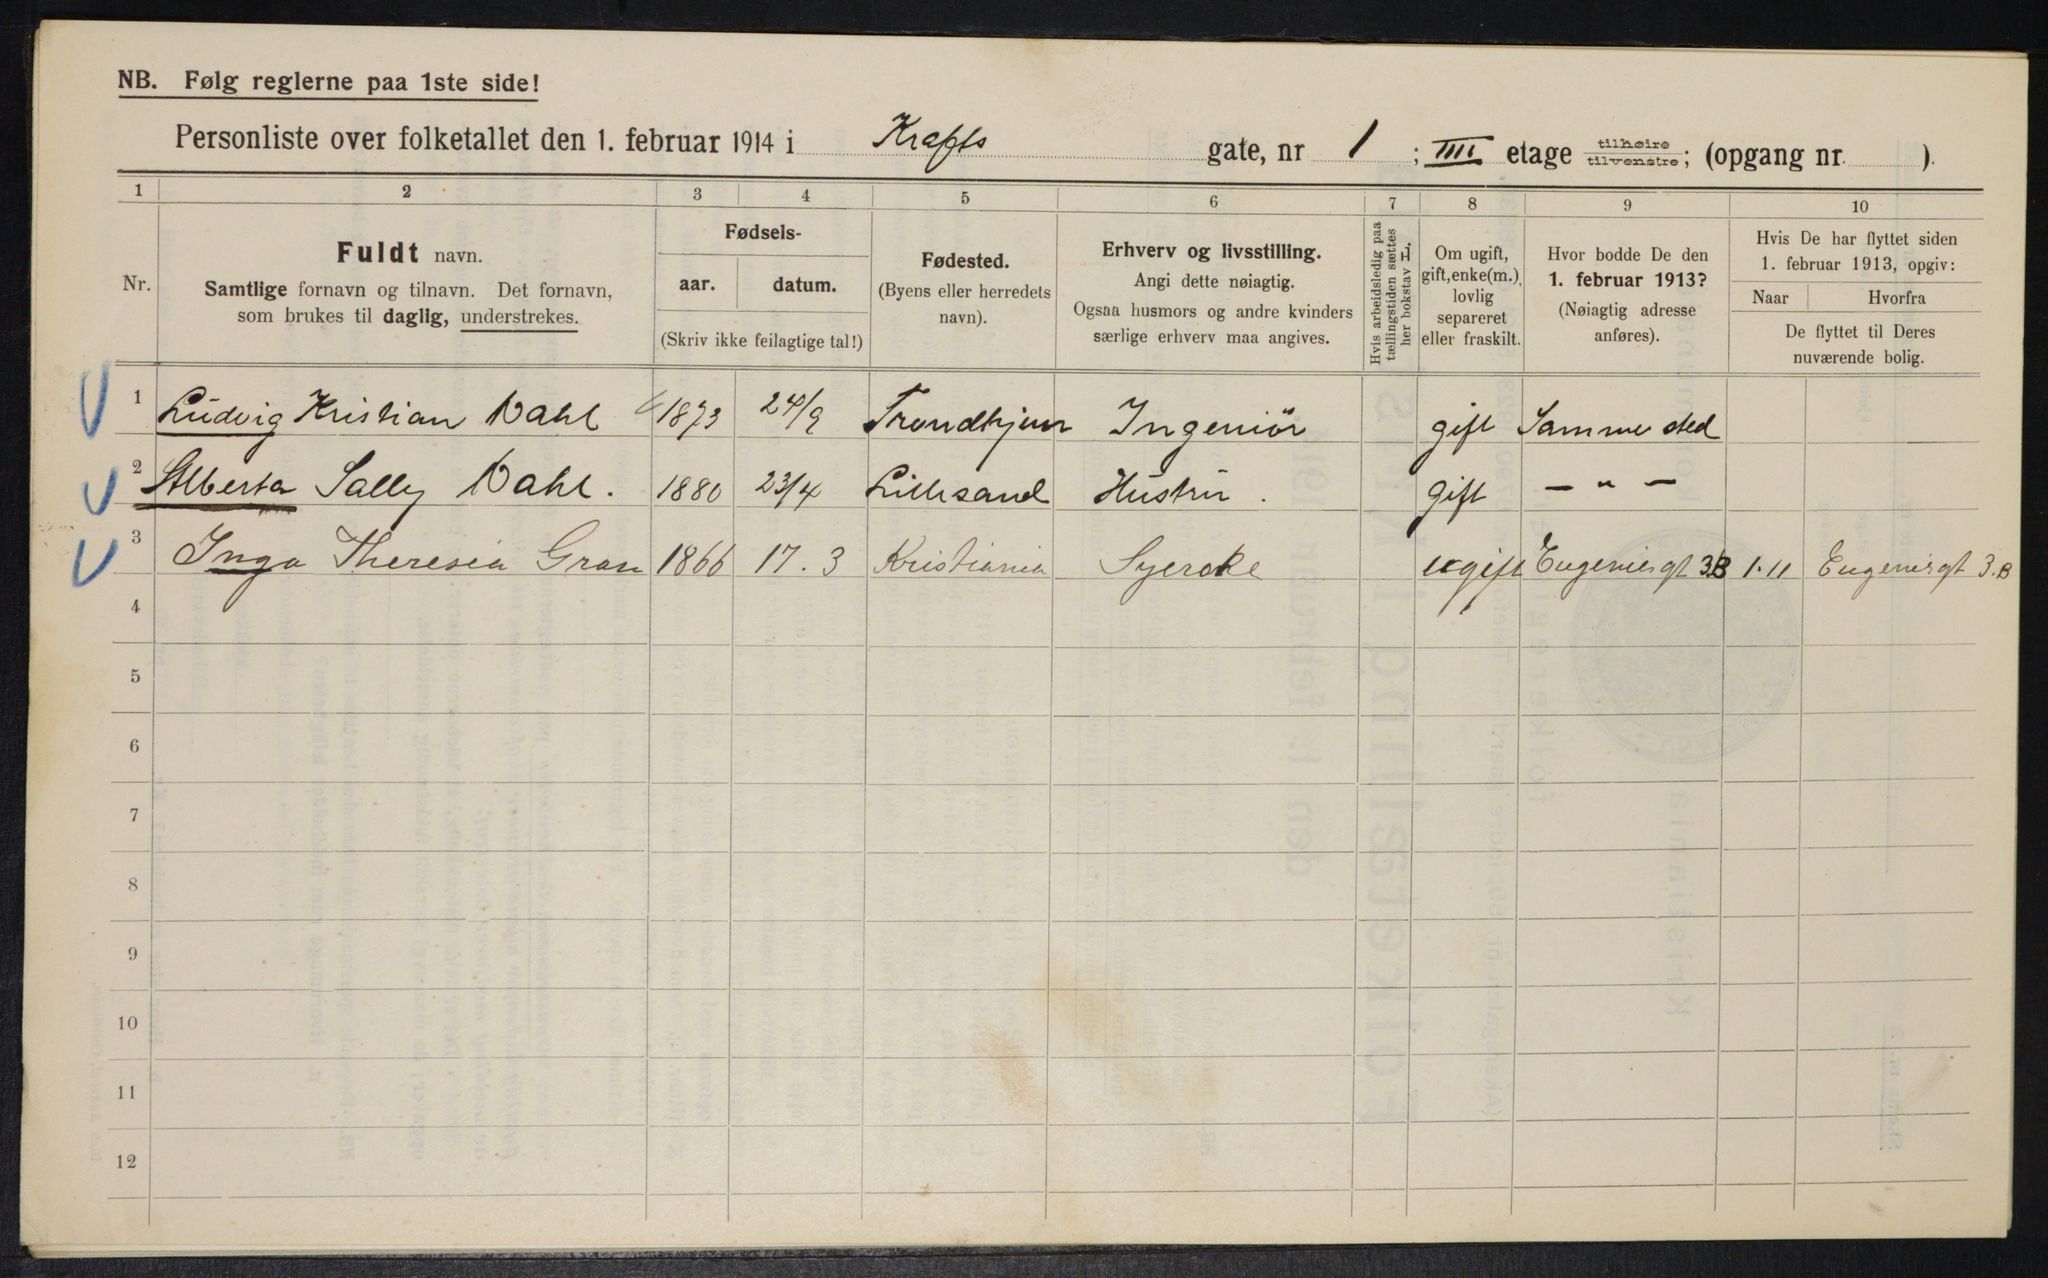 NB. Følg reglerne paa 1ste side!
Personliste over folketallet den 1. februar 1914 i Krafts gate, nr 1 ; IIII etage tilhøire tilvenstre; (opgang nr. ).
1 2 3 4 5 6 7 8 9 10
Nr.
Fuldt navn.
Samtlige fornavn og tilnavn. Det fornavn,
som brukes til daglig, understrekes.
Fødsels-
aar. datum.
(Skriv ikke feilagtige tal!)
Fødested.
(Byens eller herredets
navn).
Erhverv og livsstilling.
Angi dette nøiagtig.
Ogsaa husmors og andre kvinders
særlige erhverv maa angives.
Hvis arbeidsledig paa
tællingstiden sættes
her bokstav L.
Om ugift,
gift, enke(m.),
lovlig
separeret
eller fraskilt.
Hvor bodde De den
1. februar 1913?
(Nøiagtig adresse
anføres).
Hvis De har flyttet siden
1. februar 1913, opgiv:
Naar Hvorfra
De flyttet til Deres
nuværende bolig.
1 Ludvig Kristian Dahl 1873 24/9 Trondhjem Ingeniör gift Samme sted
2 Alberta Sally Dahl. 1880 23/4 Lillesand Hustru. gift — " —
3 Inga Theresia Gran 1866 17. 3 Kristiania Syerske ugift Eugeniesgt 3.B 1.11 Eugeniesgt 3.B
4
5
6
7
8
9
10
11
12